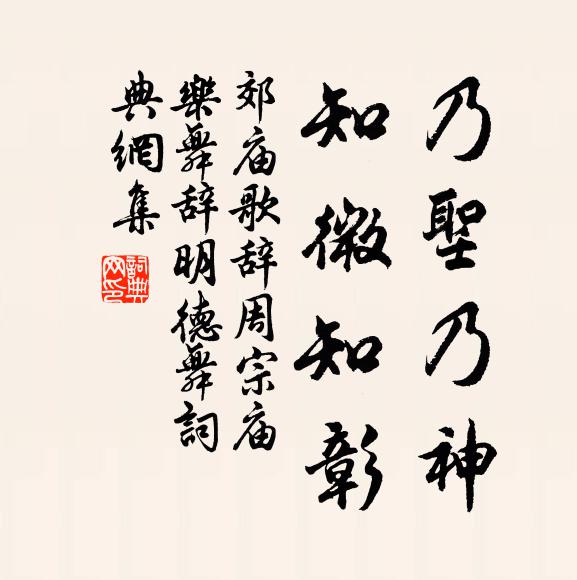 乃聖乃神
知微知彰
郊庙歌辞周宗庙
樂舞辞明德舞詞
典網集
詞典
网印